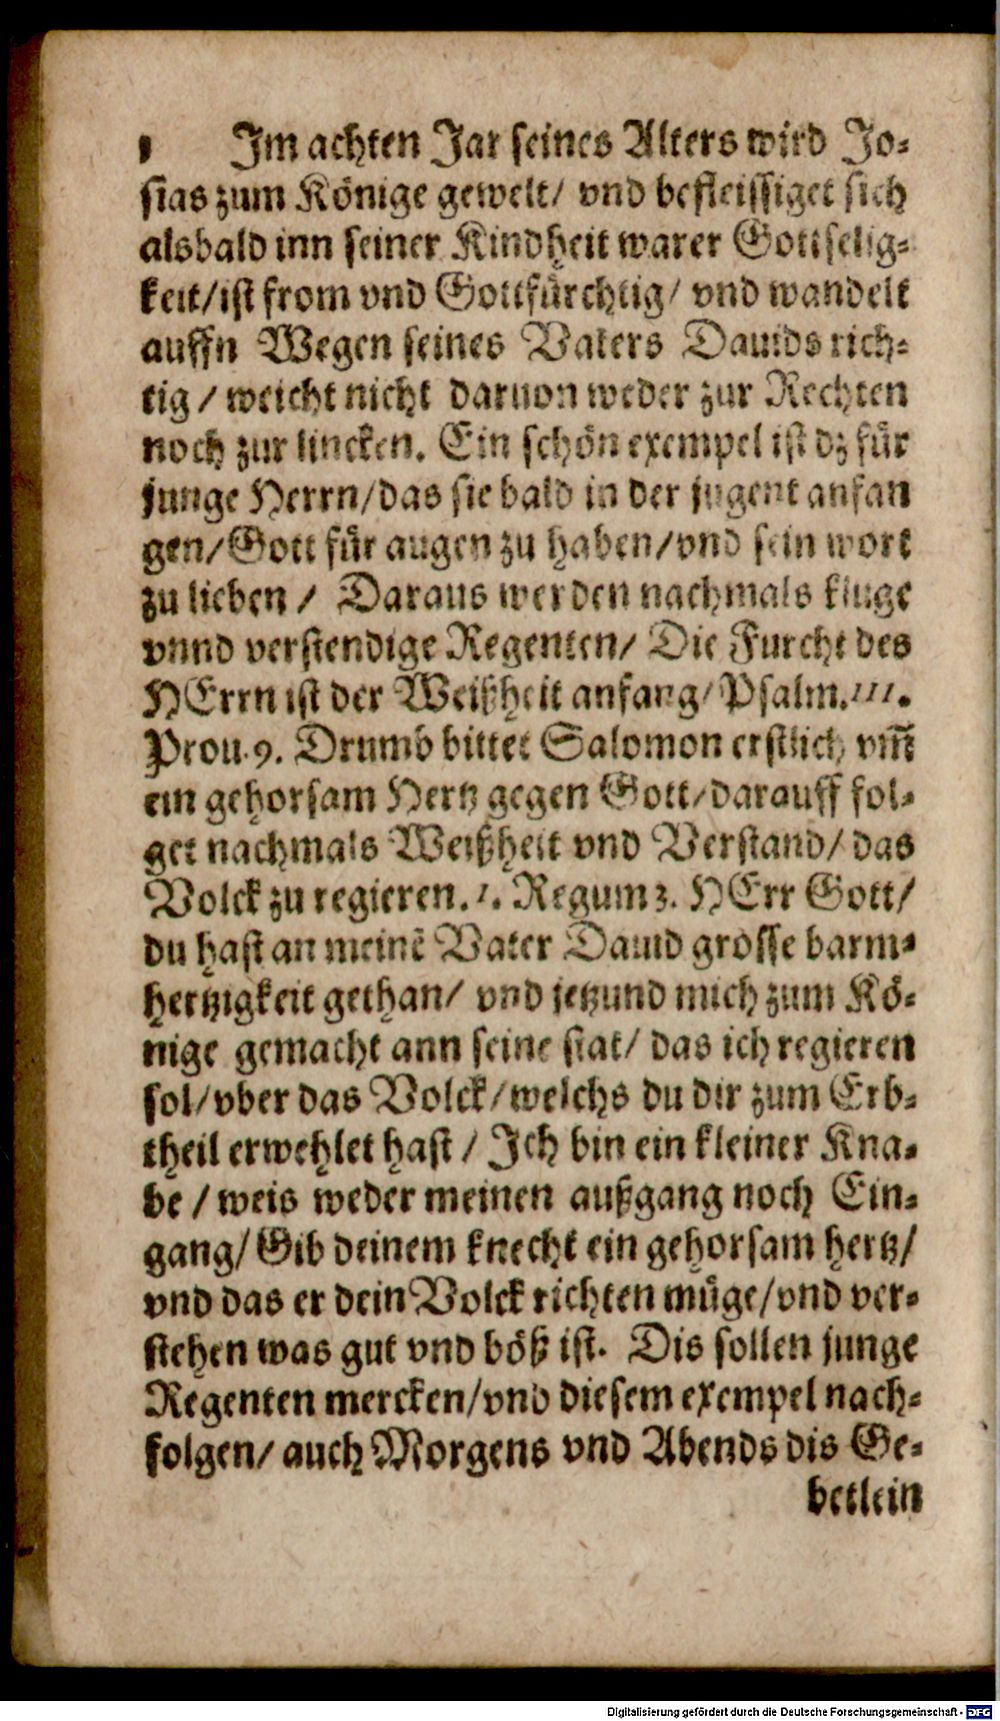 Im achten Jar seines Alters wird Jo-
sias zum Könige gewelt/ vnd befleissiget sich
alsbald inn seiner Kindheit warer Gottselig-
keit/ist from vnd Gottfürchtig/ vnd wandelt
auffn Wegen seines Vaters Dauids rich-
tig / weicht nicht daruon weder zur Rechten
noch zur lincken. Ein schön exempel ist dz für
junge Herrn/das sie bald in der jugent anfan
gen/Gott für augen zu haben/vnd sein wort
zu lieben / Daraus werden nachmals kluge
vnnd verstendige Regenten/ Die Furcht des
HErrn ist der Weißheit anfang/Psalm.111.
Prou.9. Drumb bittet Salomon erstlich vm̃
ein gehorsam Hertz gegen Gott/darauff fol-
get nachmals Weißheit vnd Verstand/ das
Volck zu regieren.1. Regum 3. HErr Gott/
du hast an meinẽ Vater Dauid grosse barm-
hertzigkeit gethan/ vnd jetzund mich zum Kö-
nige gemacht ann seine stat/ das ich regieren
sol/vber das Volck/welchs du dir zum Erb-
theil erwehlet hast / Ich bin ein kleiner Kna-
be / weis weder meinen außgang noch Ein-
gang/ Gib deinem knecht ein gehorsam hertz/
vnd das er dein Volck richten müge/vnd ver-
stehen was gut vnd böß ist. Dis sollen junge
Regenten mercken/vnd diesem exempel nach-
folgen/ auch Morgens vnd Abends dis Ge-
betlein
Digitalisierung gefördert durch die Deutsche Forschungsgemeinschaft - DFG